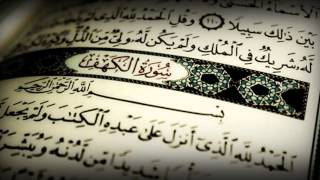 الْأَسْمَاءُ الْحُسْنَىٰ
بَيْنَ ذَٰلِكَ سَبِيلًا ١١٠ وَقُلِ الْحَمْدُ لِلَّهِ الَّذِي
لَّهُ شَرِيكٌ فِي الْمُلْكِ وَلَمْ يَكُن لَّهُ وَلِيٌّ مِّنَ الذُّلِّ
سُورَةُ الْكَهْفِ
بِسْمِ اللَّهِ الرَّحْمَٰنِ الرَّحِيمِ
الْحَمْدُ لِلَّهِ الَّذِي أَنزَلَ عَلَىٰ عَبْدِهِ الْكِتَٰبَ وَلَمْ يَجْعَل
شَدِيدًا مِّن لَّدُنْهُ وَيُبَشِّرَ